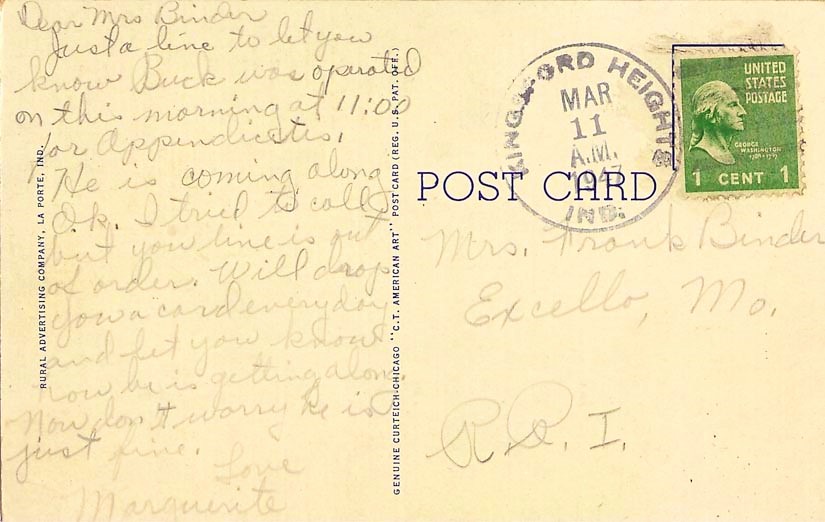 Dear Mrs Binder
Just a line to let you
know Buck was operated
on this morning at 11:00
for Appendicates.
He is coming along
O.k. I tried to call
but you line is out
of order. Will drop
you a card everyday
and let you know
how he is getting along.
Now don't worry he is
just fine.
Love
Marguerite
RURAL ADVERTISING COMPANY, LA PORTE, IND.
GENUINE CURTEICH-CHICAGO "C.T. AMERICAN ART" POST CARD (REG. U.S. PAT. OFF.)
POST CARD
KINGSFORD HEIGHTS
MAR
11
A.M.
1947
IND.
UNITED
STATES
POSTAGE
GEORGE
WASHINGTON
1789-1797
1 CENT 1
Mrs. Frank Binder
Excello, Mo.
R.R. I.